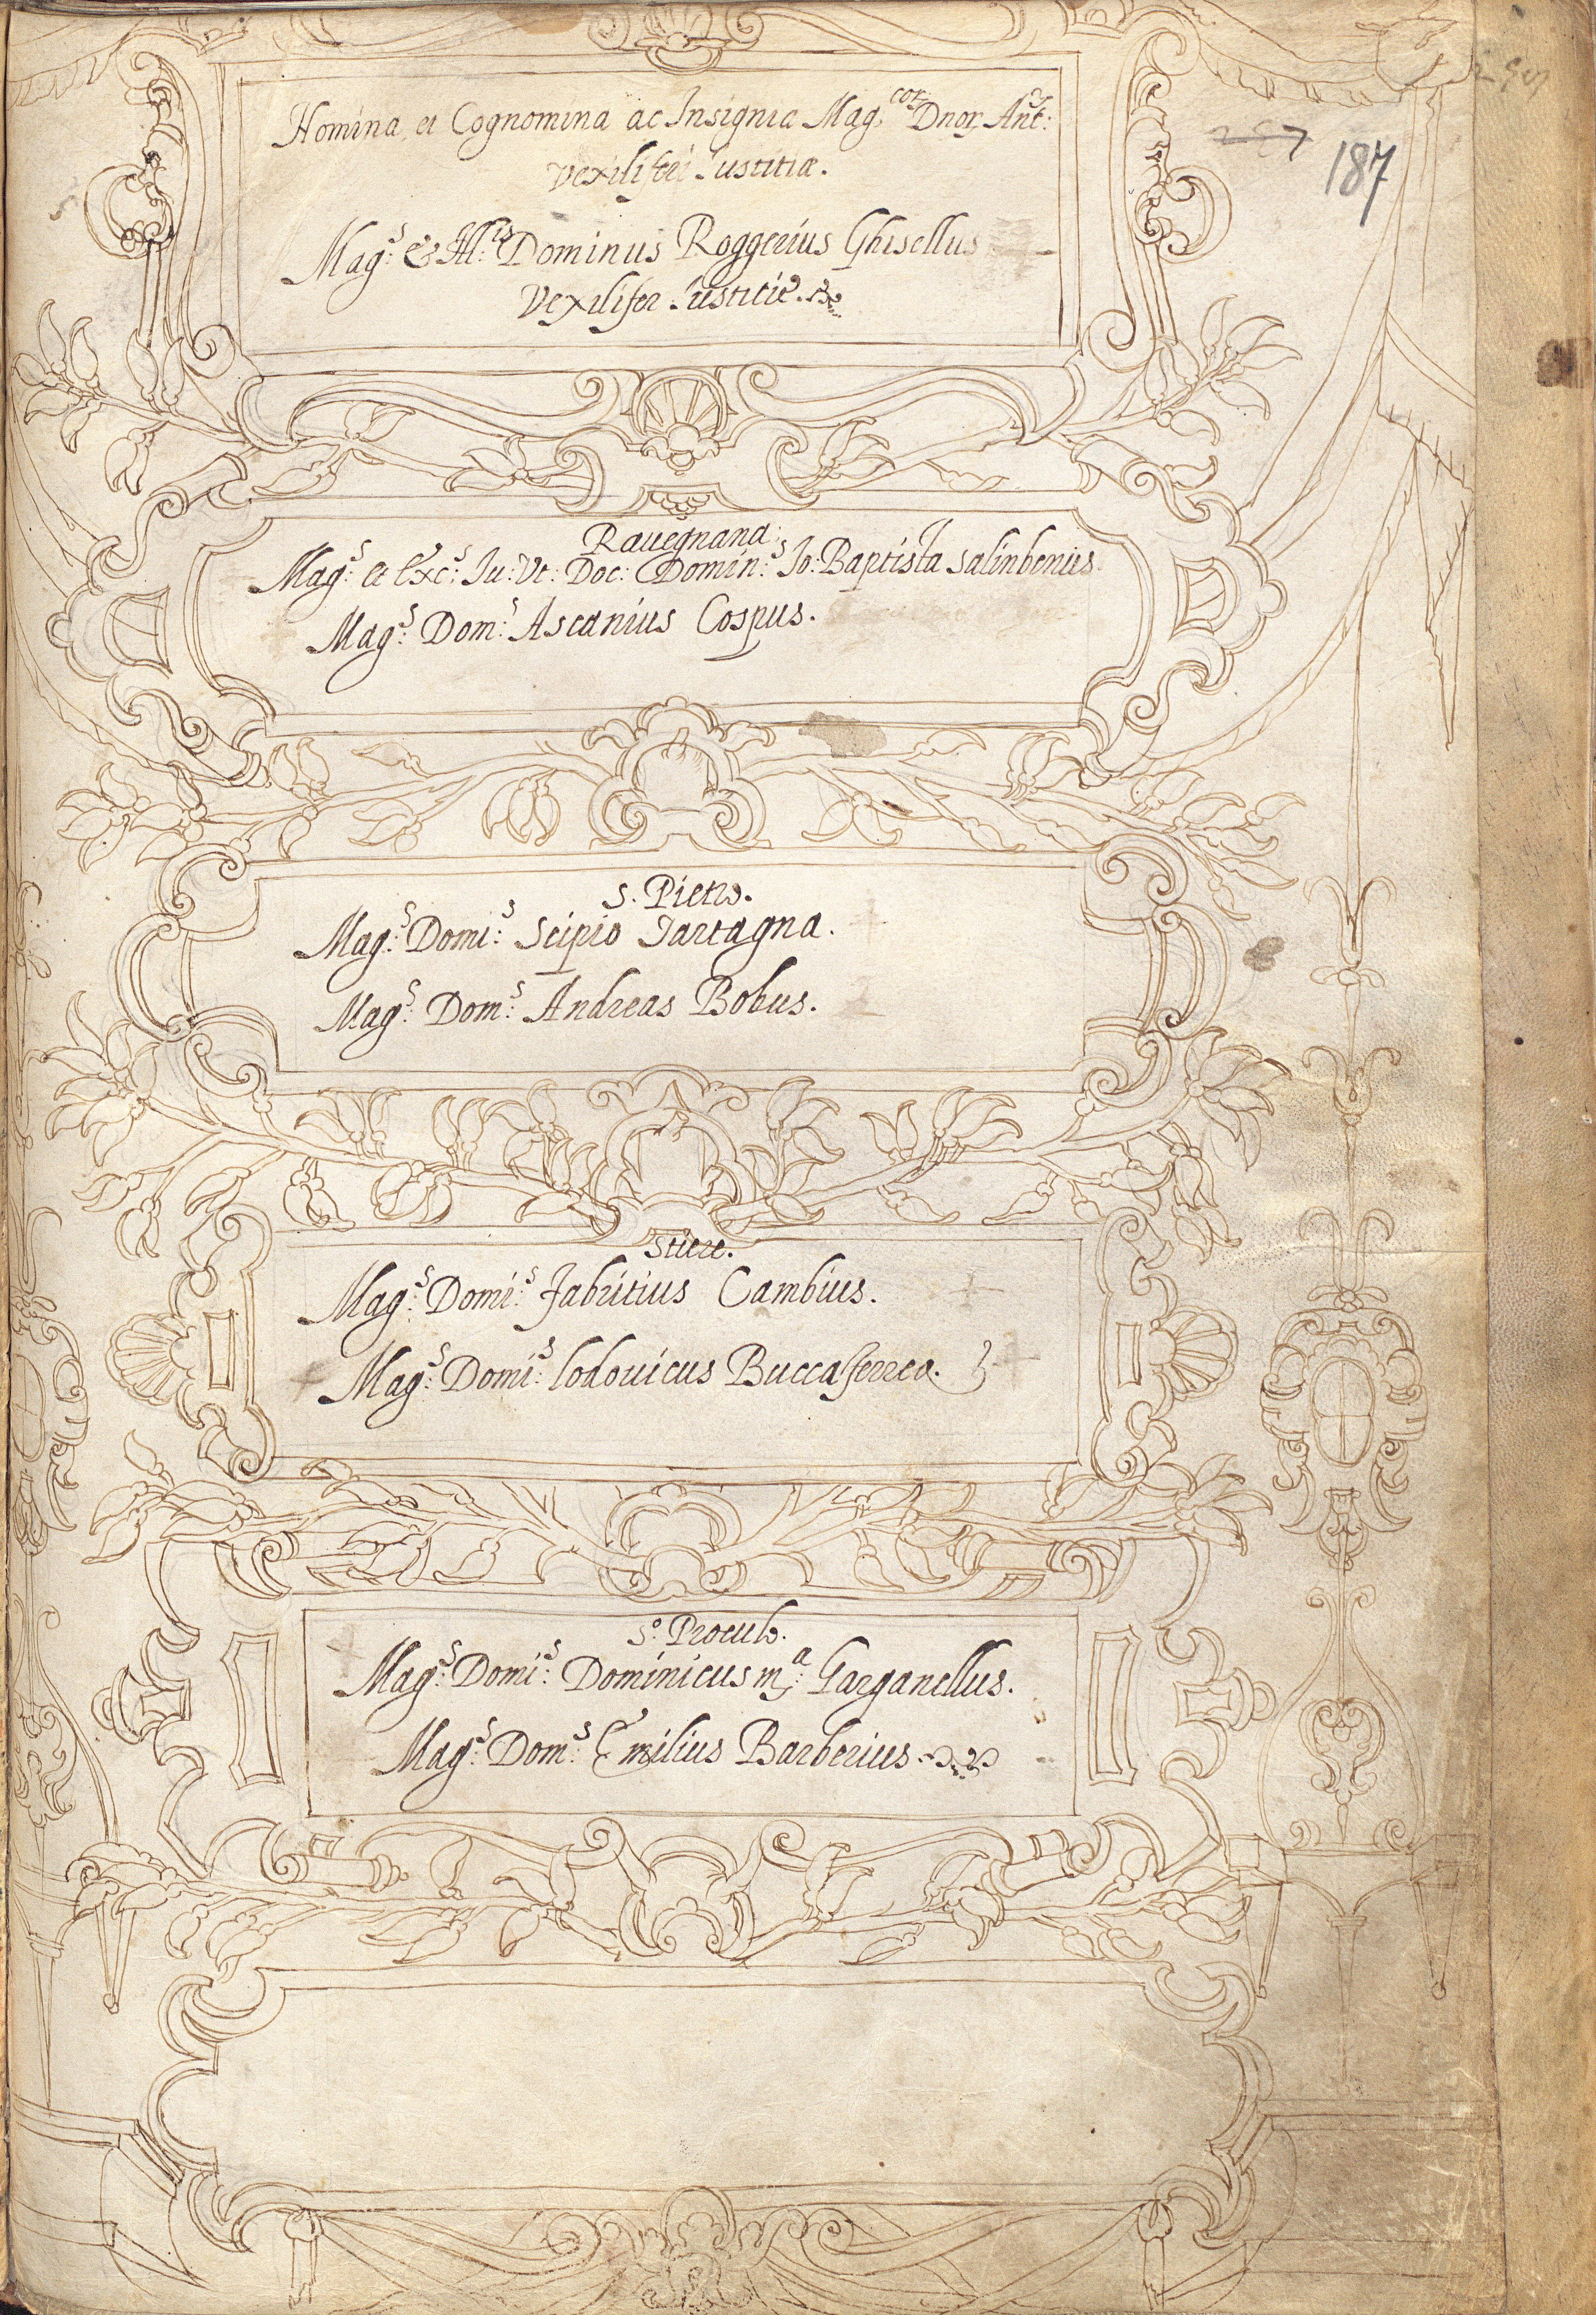 187
Nomina et Cognomina ac Insignia Mag.cor Dnor Ant:
Vexiliferi Iustitiæ.
Mag:s & Ill:is Dominus Roggerius Ghisellus
Vexilifer Iustitie.
Rauegnana;
Mag:s et Exc:s Iu: Vt: Doc: Domin:s Io: Baptista Salinbenius.
Mag:s Dom:s Ascanius Cospus.
S. Pietro.
Mag:s Domi:s Scipio Tartagna.
Mag:s Dom:s Andreas Bobus.
Stiere.
Mag:s Domi:s Fabritius Cambius.
Mag:s Domi:s Lodouicus Buccaferrea.
S:o Proculo.
Mag:s Domi:s Dominicus m:a Garganellus.
Mag:s Dom:s Emilius Barberius.